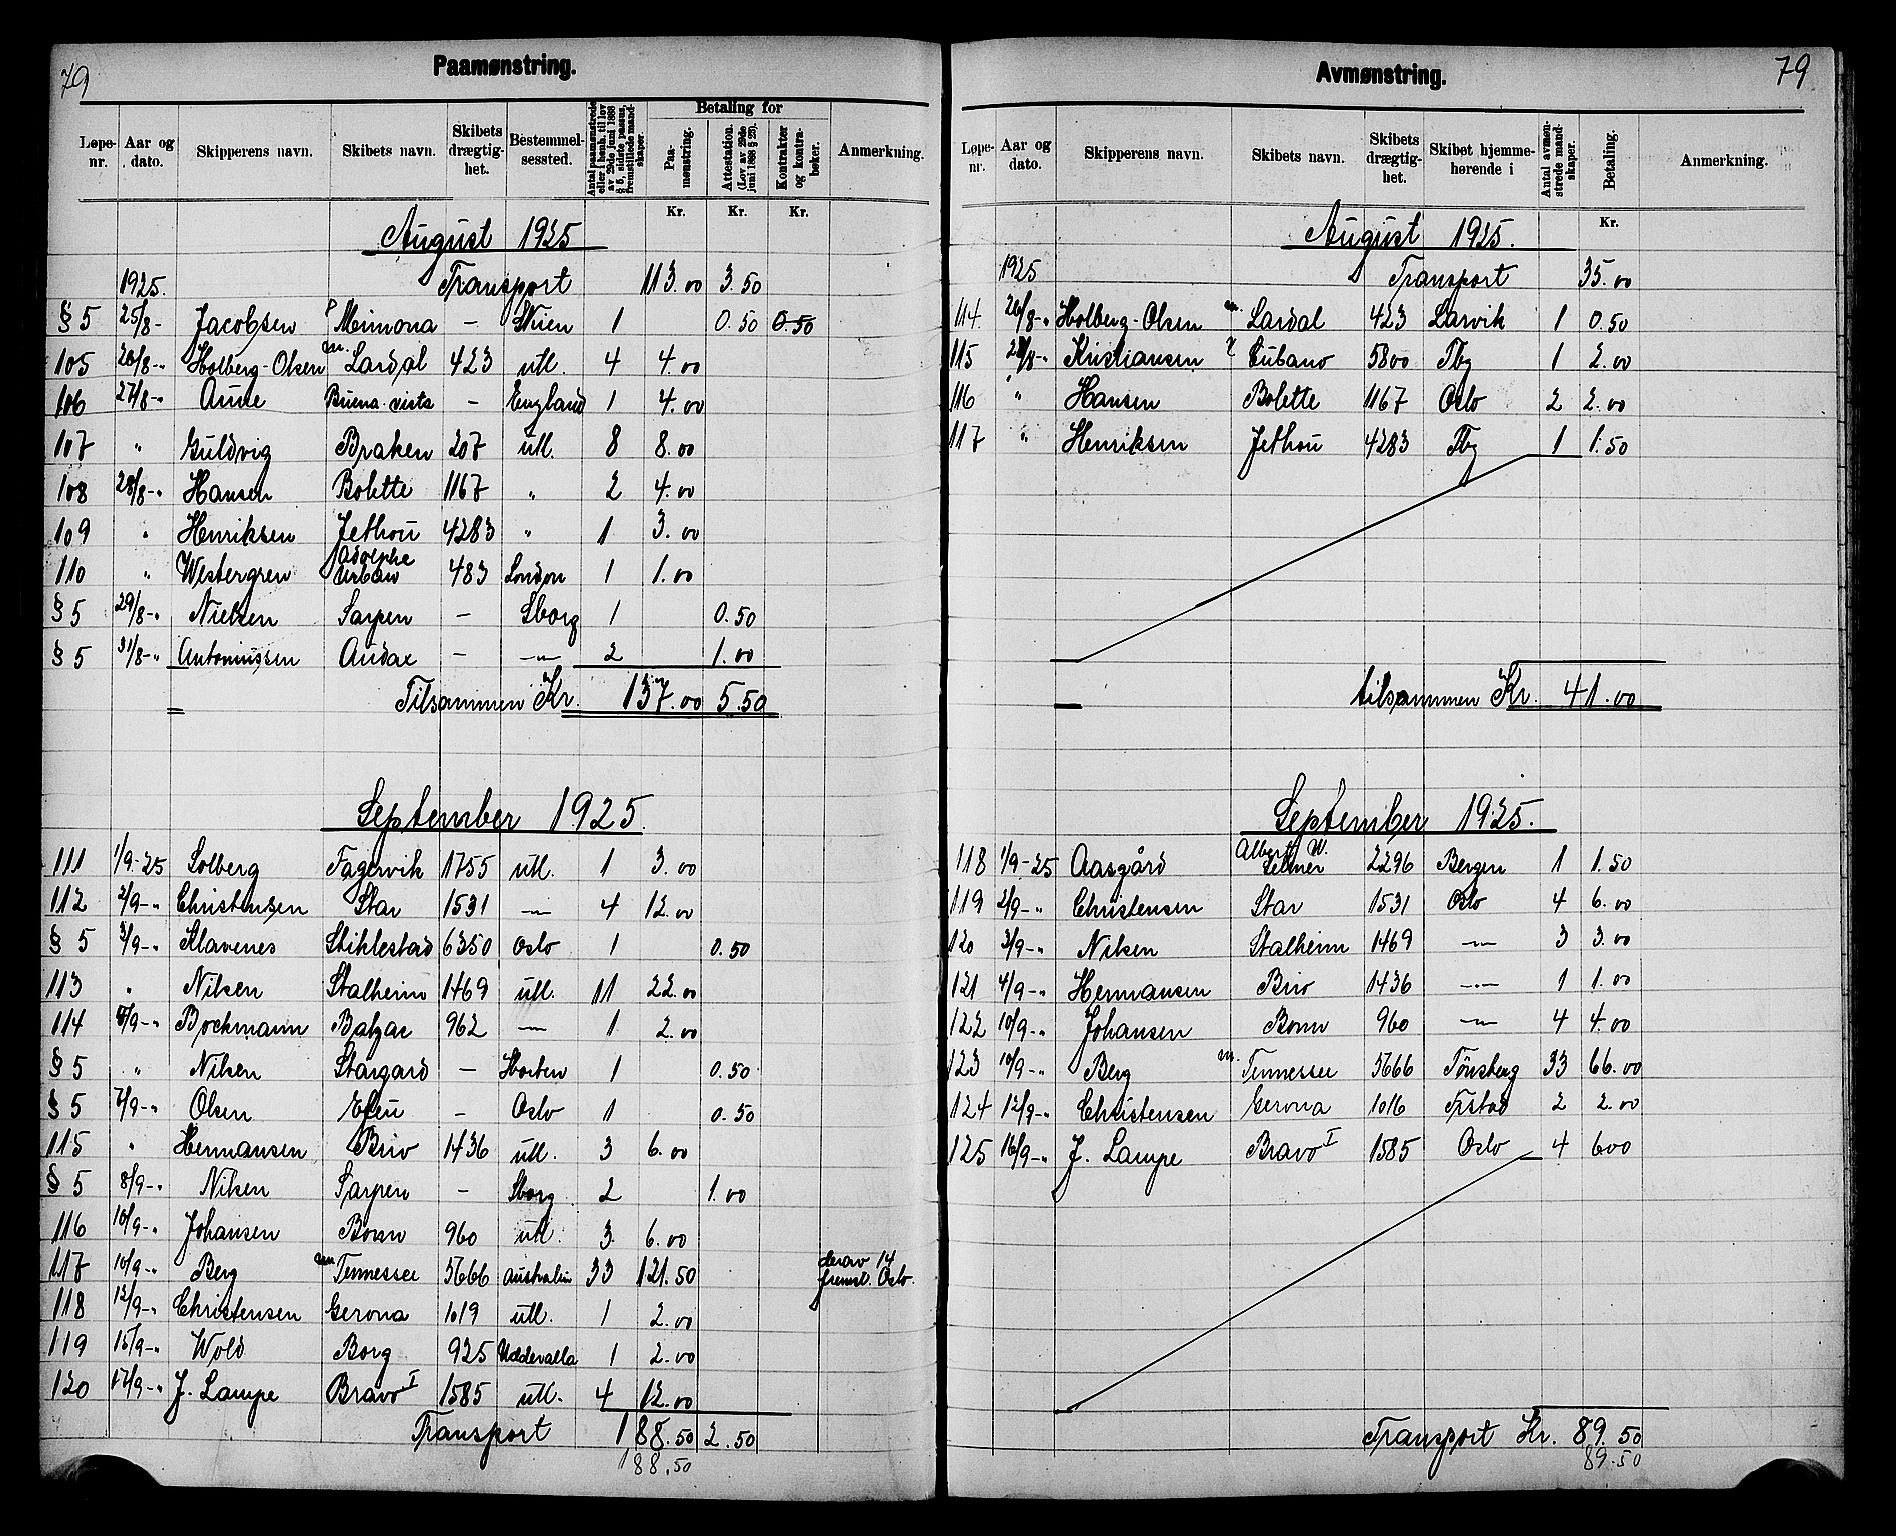 79
Paamønstring.
Løpe-nr. Aar og dato. Skipperens navn. Skibets navn. Skibets drægtig-het. Bestemmel-sessted. Antal paamønstrede eller i henh. til lov av 29de juni 1888 § 5, sidste passus, fremstillede mand-skaper. Betaling for Paa-mønstring. Attestation. (Lov av 29de juni 1888 § 23). Kontrakter og kontra-bøker. Anmerkning.
Kr. Kr. Kr.
August 1925
1925. Transport 113.00 3.50
§ 5 25/8 - Jacobsen Mimona — Skien 1 0.50 0.50
105 26/8 -" Holberg-Olsen m. Lardal 423 utl. 4 4.00
106 27/8 -" Aune Buena vista - England 1 4.00
107 " Guldvig Braken 207 utl. 8 8.00
108 28/8 -" Hansen Bolette 1167 " 2 4.00
109 " Henriksen Jethou 4283 " 1 3.00
110 " Westergren Adolphe Urban 483 London 1 1.00
§ 5 29/8 -" Nielsen Sarpen — Sborg 1 0.50
§ 5 31/8 -" Antonissen Audax — —"— 2 1.00
Tilsammen Kr. 137.00 5.50
September 1925
111 1/9-25 Solberg Fagervik 1755 utl. 1 3.00
112 2/9 -" Christensen Star 1531 —"— 4 12.00
§ 5 3/9 -" Klavenes Stiklestad 6350 Oslo 1 0.50
113 " Nilsen Stalheim 1469 utl. 11 22.00
114 /9 -" Bockmann Balzac 962 —"— 1 2.00
§ 5 " Nilsen Stargard — Horten 1 0.50
§ 5 7/9 -" Olsen - Oslo 1 0.50
115 " Hermansen Brio 1436 utl. 3 6.00
§ 5 8/9 -" Nilsen Sarpen — Sborg 2 1.00
116 10/9 -" Johansen Bonn 960 utl. 3 6.00
117 10/9 -" Berg m Tennessee 5666 Australien 33 121.50 derav 14 fremst. Oslo.
118 12/9 -" Christensen Gerona 1019 utl. 1 2.00
119 15/9 -" Wold Borg 925 Uddevalla 1 2.00
120 17/9 -" J. Lampe Bravo I 1585 utl. 4 12.00
Transport 188.50 2.50
188.50
79
Avmønstring.
Løpe-nr. Aar og dato. Skipperens navn. Skibets navn. Skibets drægtig-het. Skibet hjemme-hørende i Antal avmøn-strede mand-skaper. Betaling. Anmerkning.
Kr.
August 1925.
1925 Transport 35.00
114. 26/8 -" Holberg-Olsen m. Lardal 423 Larvik 1 0.50
115 28/8 -" Kristiansen Cubano 5800 Tbg 1 2.00
116 " Hansen Bolette 1167 Oslo 2 2.00
117 " Henriksen Jethou 4283 Tbg 1 1.50
tilsammen Kr. 41.00
September 1925.
118 1/9-25 Aasgård Albert W. Selmer 2296 Bergen 1 1.50
119 2/9 -" Christensen Star 1531 Oslo 4 6.00
120 3/9 -" Nilsen Stalheim 1469 —"— 3 3.00
121 4/9 -" Hermansen Brio 1436 —"— 1 1.00
122 10/9 -" Johansen Bonn 960 —"— 4 4.00
123 10/9 -" Berg m. Tennessee 5666 Tönsberg 33 66.00
124 12/9 -" Christensen Gerona 1016 Frstad 2 2.00
125 16/9 -" J. Lampe Bravo I 1585 Oslo 4 600
Transport Kr. 89.50
89.50